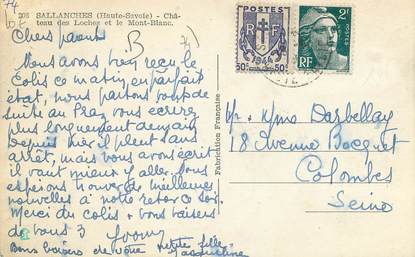 74
206 SALLANCHES (Haute-Savoie) - Châ-
teau des Loches et le Mont-Blanc.
Chers parents
Nous avons bien reçu le
Colis ce matin, en parfait
état, nous partons tout de
suite au Praz, vous écrirez
plus longuement demain
Depuis hier il pleut sans
arrêt, mais vous avons écrit
il vaut mieux y aller. Nous
espérons trouver de meilleures
nouvelles à notre retour ce soir.
Merci du colis & bons baisers
de vous 3
Bons baisers de votre petite fille
Jacqueline
B
Fabrication Française
50F
RF
1944
50F
POSTES
2F
RF
Mr & Mme Darbellay
18 Avenue Bocquet
Colombes
Seine